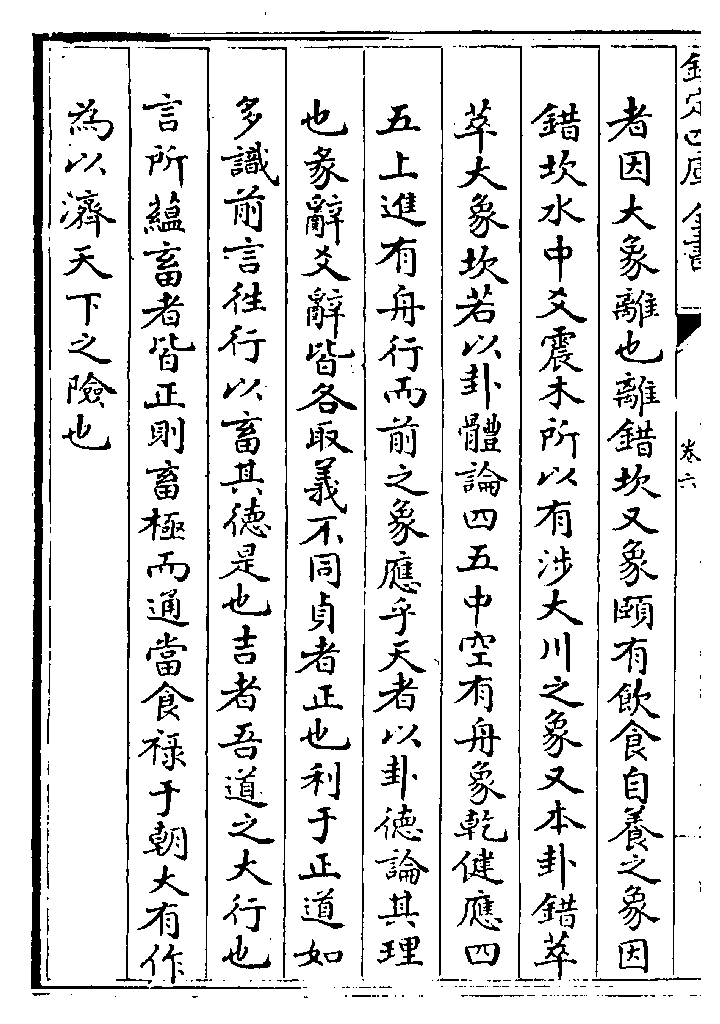 欽定四庫全書
卷六
者因大象離也離錯坎又象頤有飲食自養之象因
錯坎水中爻震木所以有涉大川之象又本卦錯萃
萃大象坎若以卦體論四五中空有舟象乾健應四
五上進有舟行而前之象應乎天者以卦德論其理
也彖辭爻辭皆各取義不同貞者正也利于正道如
多識前言徃行以畜其德是也吉者吾道之大行也
言所蘊畜者皆正則畜極而通當食禄于朝大有作
為以濟天下之險也